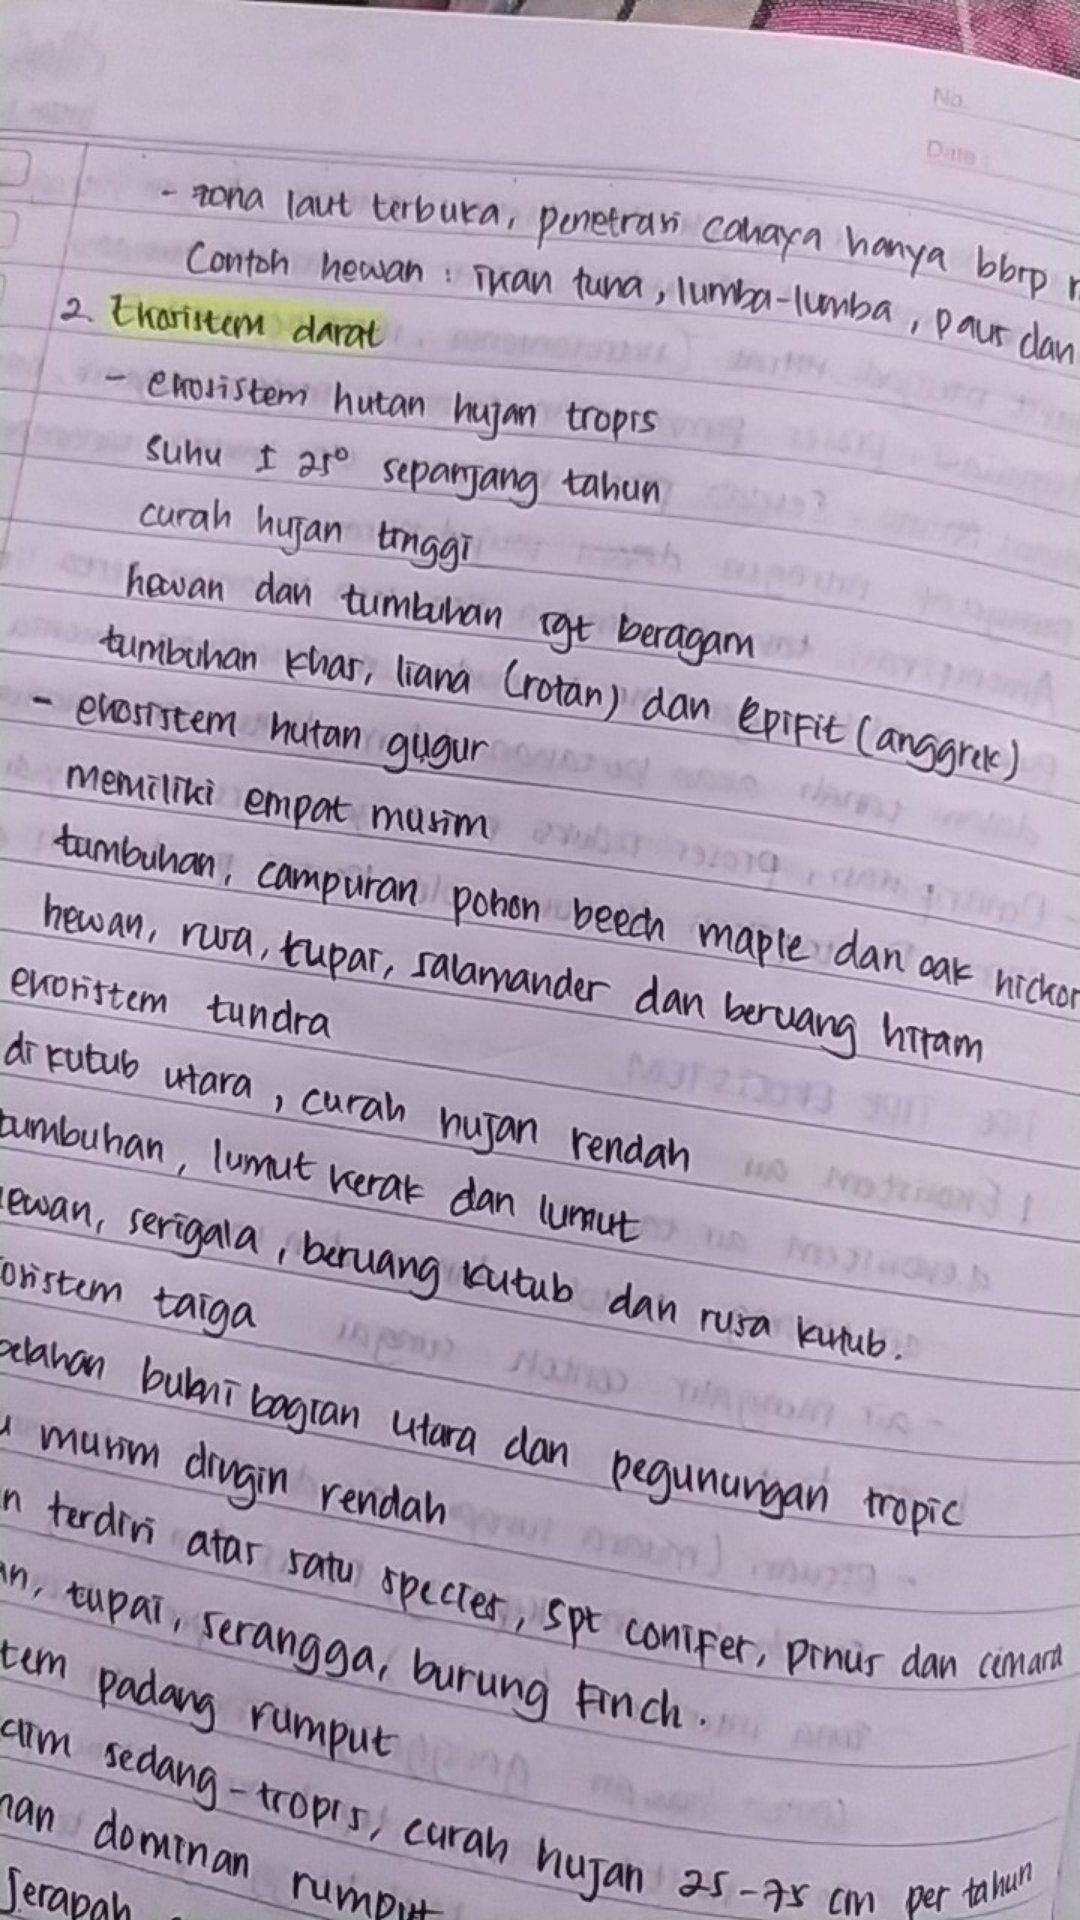 No.
Date :
- zona laut terbuka, penetrasi cahaya hanya bbrp
Contoh hewan : ikan tuna, lumba-lumba, paus dan
2. Ekosistem darat
- ekosistem hutan hujan tropis
suhu ± 25° sepanjang tahun
curah hujan tinggi
hewan dan tumbuhan sgt beragam
tumbuhan khas, liana (rotan) dan epifit (anggrek)
- ekosistem hutan gugur
memiliki empat musim
tumbuhan, campuran pohon beech maple dan oak hickor
hewan, rusa, tupai, salamander dan beruang hitam
ekosistem tundra
di kutub utara, curah hujan rendah
tumbuhan, lumut kerak dan lumut
ewan, serigala, beruang kutub dan rusa kutub.
osistem taiga
belahan bumi bagian utara dan pegunungan tropic
musim dingin rendah
n terdiri atas satu species, spt conifer, pinus dan cemara
an, tupai, serangga, burung Finch.
tem padang rumput
klim sedang - tropis, curah hujan 25 - 75 cm per tahun
han dominan rumput
Jerapah